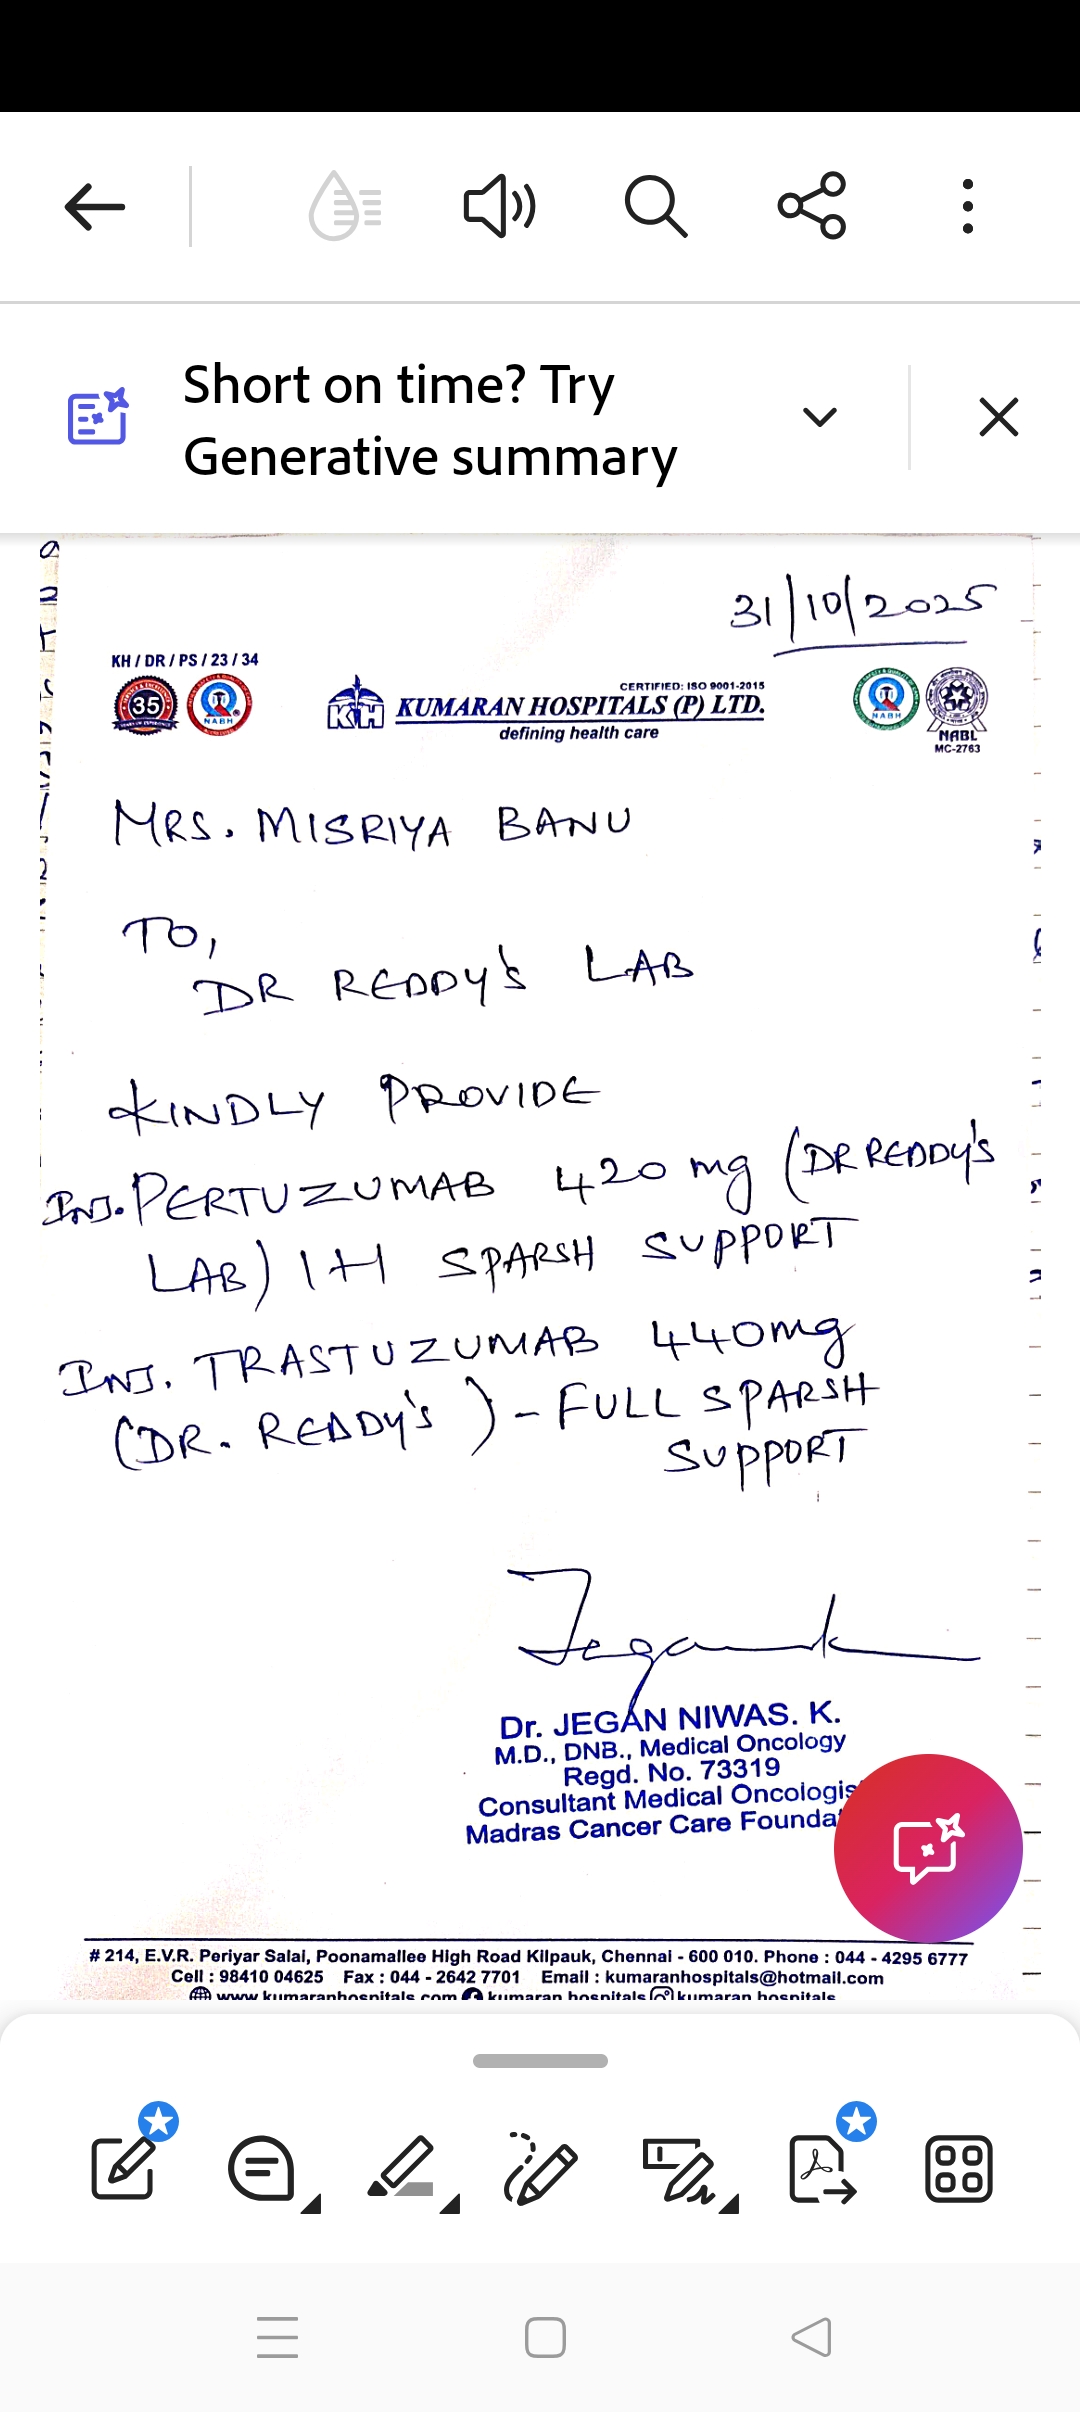 Short on time? Try
Generative summary
31/10/2025
KH / DR / PS / 23 / 34
35
NABH
KH
CERTIFIED: ISO 9001-2015
KUMARAN HOSPITALS (P) LTD.
defining health care
NABH
NABL
MC-2763
MRS. MISRIYA BANU
TO,
DR REDDY'S LAB
KINDLY PROVIDE
INJ. PERTUZUMAB 420 mg (DR REDDY'S
LAB) 1+1 SPARSH SUPPORT
INJ. TRASTUZUMAB 440mg
(DR. REDDY'S) - FULL SPARSH
SUPPORT
Jegan
Dr. JEGAN NIWAS. K.
M.D., DNB., Medical Oncology
Regd. No. 73319
Consultant Medical Oncologis
Madras Cancer Care Founda
# 214, E.V.R. Periyar Salai, Poonamallee High Road Kilpauk, Chennai - 600 010. Phone : 044 - 4295 6777
Cell : 98410 04625 Fax : 044 - 2642 7701 Email : kumaranhospitals@hotmail.com
www.kumaranhospitals.com kumaran hospitals kumaran hospitals